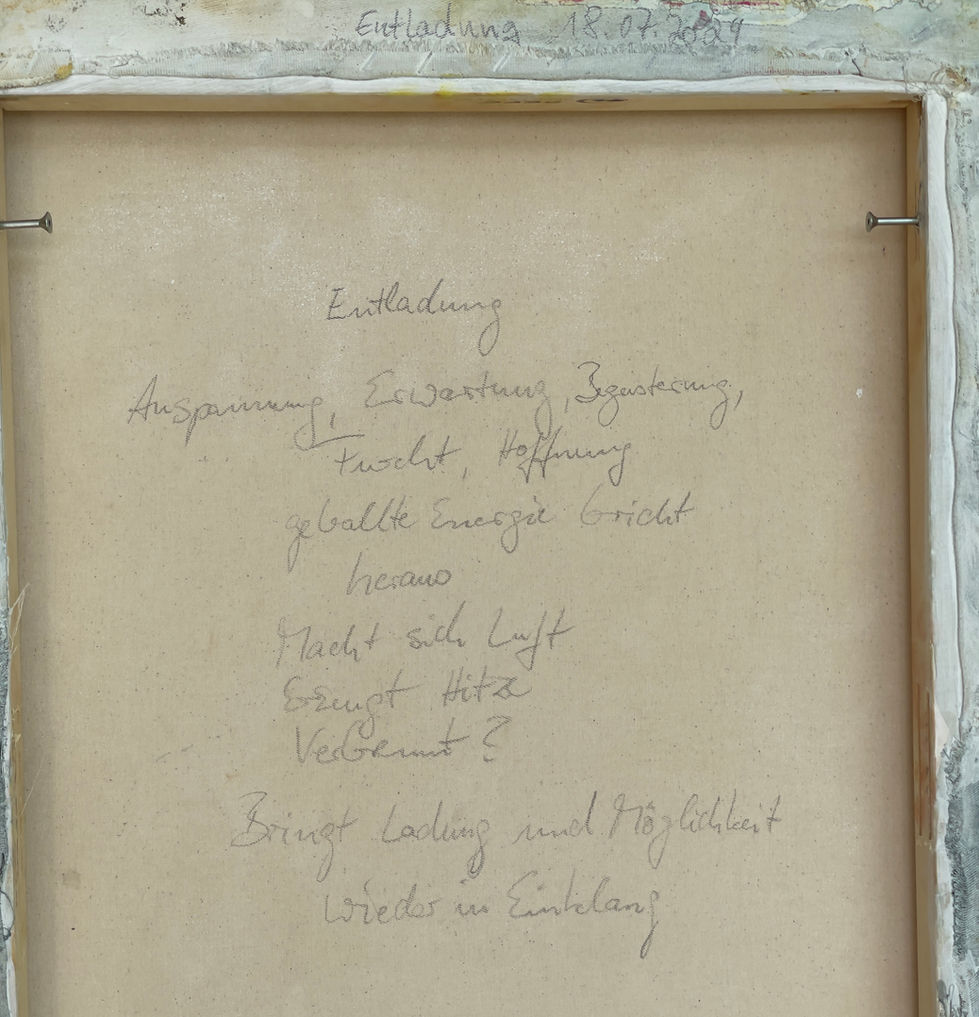 Entladung 18.07.2024
Entladung
Anspannung, Erwartung, Begeisterung,
Furcht, Hoffnung
geballte Energie bricht
heraus
Macht sich Luft
Erzeugt Hitze
Verbrennt?
Bringt Ladung und Möglichkeit
wieder in Einklang